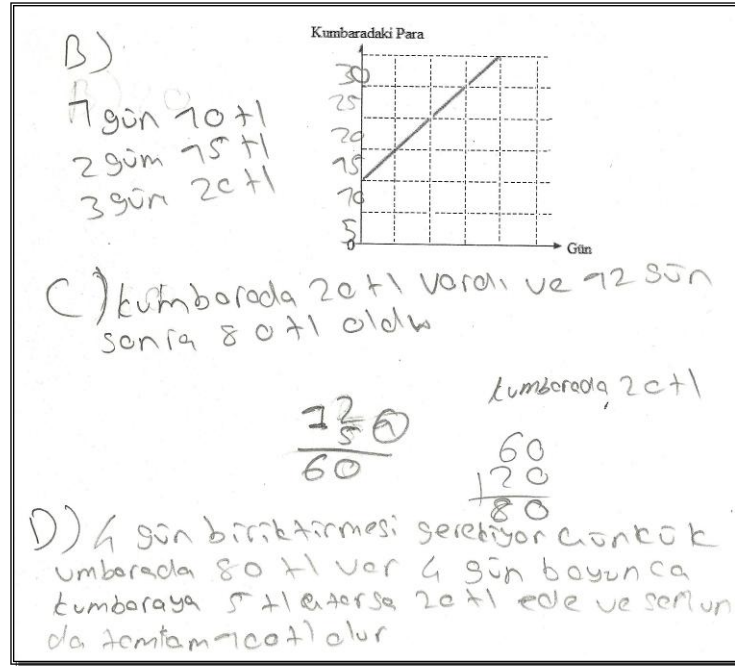 B)
Kumbaradaki Para
1 gün 10 tl
2 güm 15 tl
3 gün 20 tl
30
25
20
15
10
5
0
Gün
C) kumbarada 20 tl vardı ve 12 gün
sonra 80 tl oldu
kumbarada 20 tl
12
5
60
60
20
80
D) 4 gün biriktirmesi gerekiyor çünkü k
umbarada 80 tl var 4 gün boyunca
kumbaraya 5 tl atarsa 20 tl ede ve sonun
da tamtam 100 tl olur